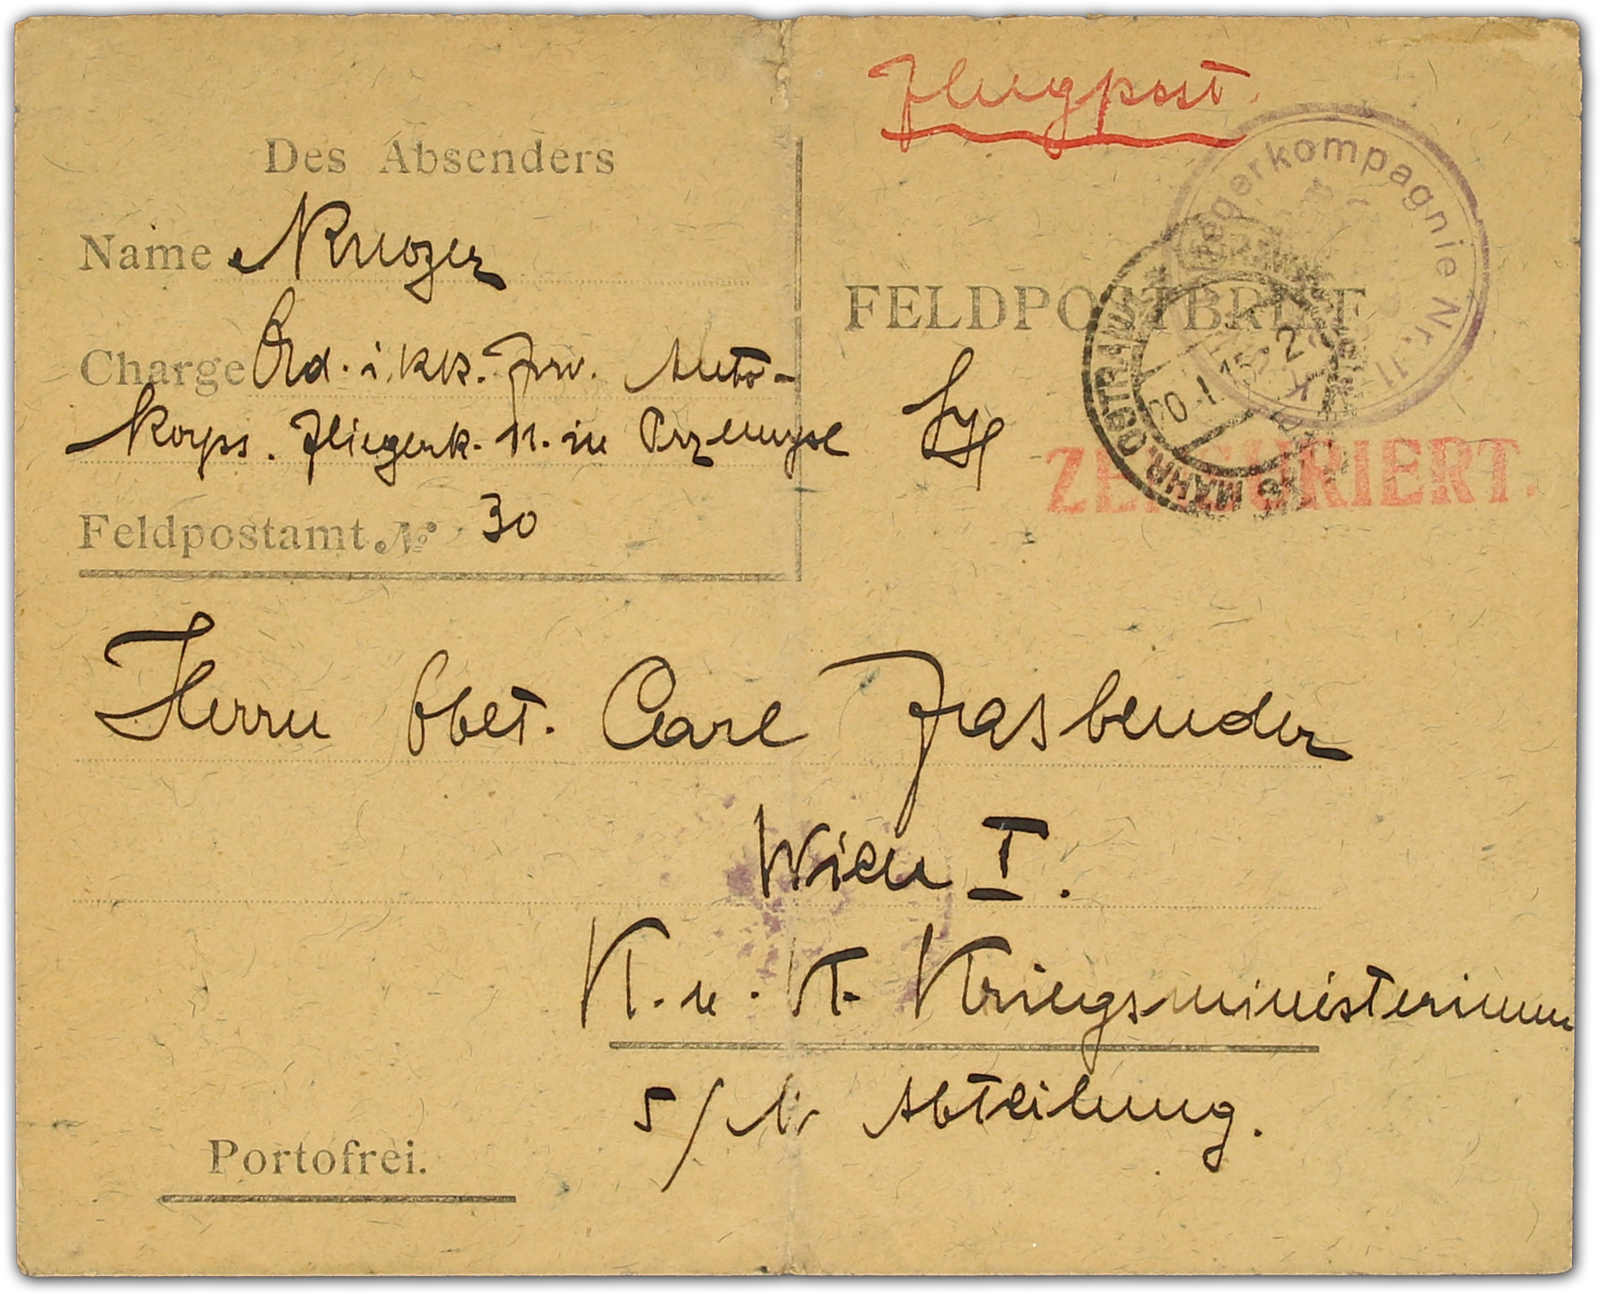 Flugpost
Des Absenders
Name Kruger
Charge Ord. i. kk. Frw. Auto-
Korps. Fliegerk. 11. in Przemysl
Feldpostamt № 30
FELDPOSTBRIEF
Fliegerkompagnie Nr. 11
MÄHR. OSTRAU
ZENSURIERT.
Herrn Oblt. Carl Fasbender
Wien I.
K. u. K. Kriegsministerium
5/M Abteilung.
Portofrei.